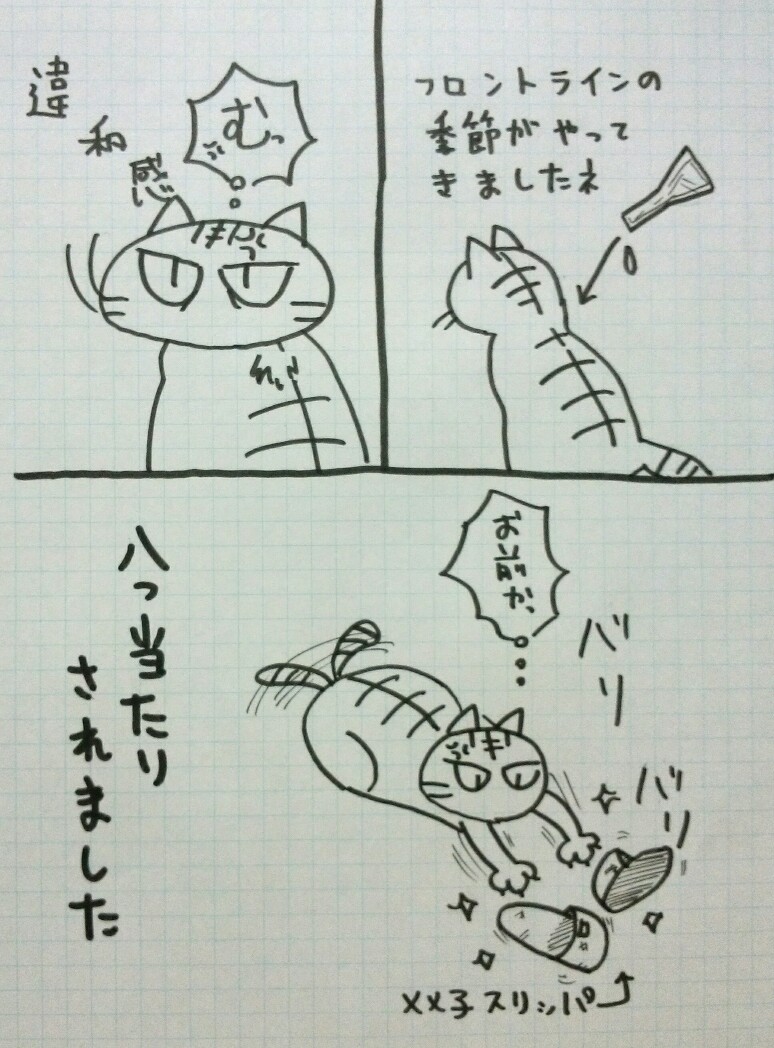 フロントラインの
季節がやって
きましたネ
違
和
感
むっ
お前か、
バリ
バリ
メメ子スリッパ
八つ当たり
されました